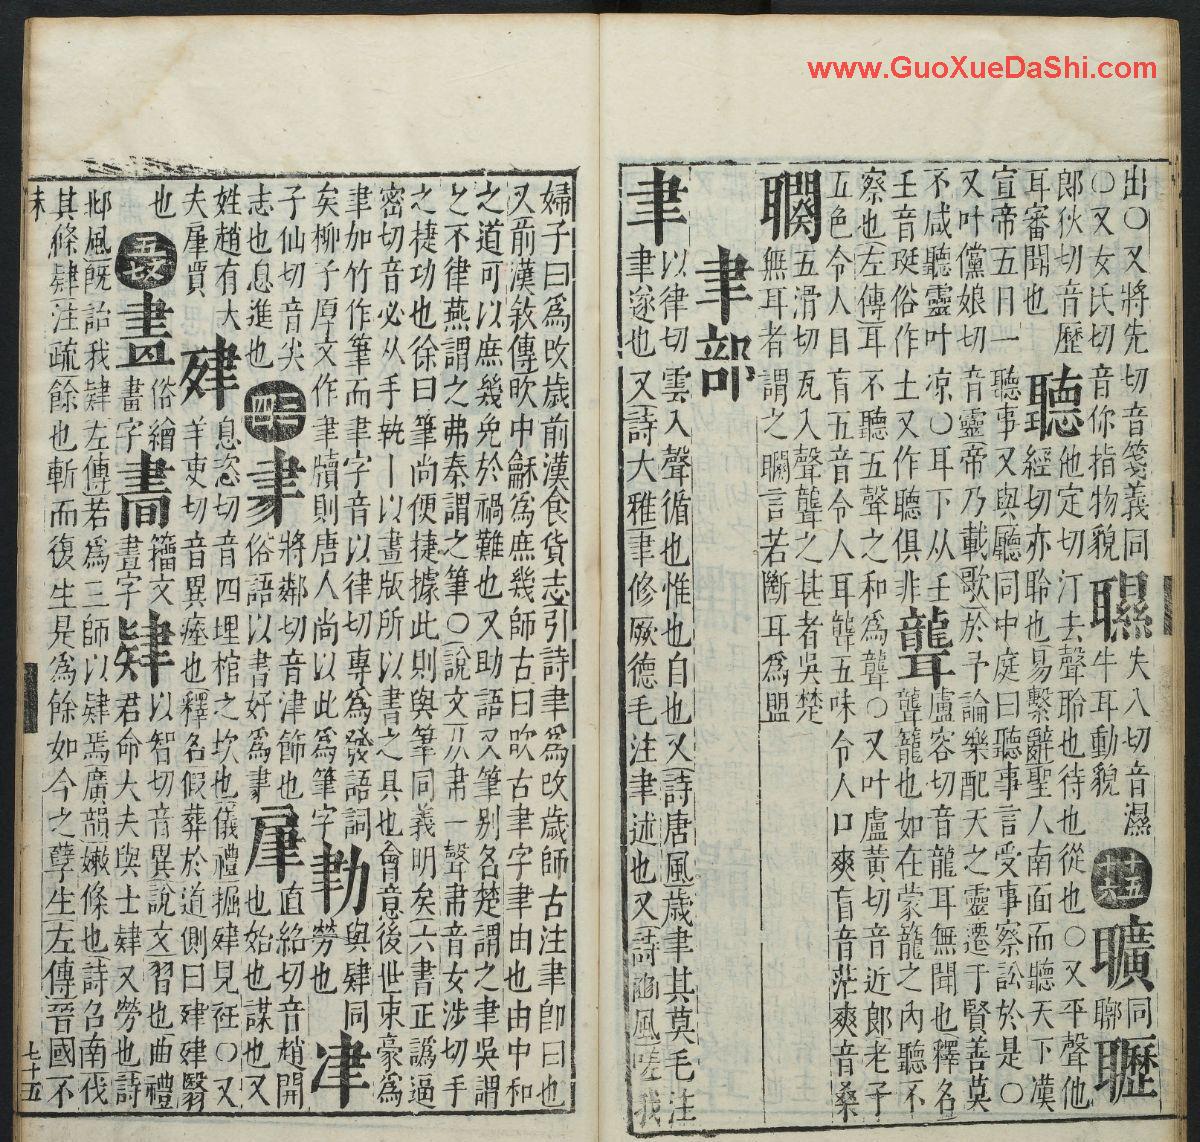 www.GuoXueDaShi.com
出○又將先切音箋義同 聺 失入切音濕
○又女氏切音你指物貌 牛耳動貌 十五 十六 曠 同聯 𦗺
郎狄切音歷 聽 他定切汀去聲聆也待也從也○又平聲他
耳審聞也 經切亦聆也易繫辭聖人南面而聽天下漢
宣帝五日一聽事又與廳同中庭曰聽事言受事察訟於是○
又叶儻娘切音靈帝乃載歌於予論樂配天之靈遷于賢善莫
不咸聽靈叶凉○耳下从壬 聾 盧容切音龍耳無聞也釋名
壬音珽俗作土又作聴俱非 聾籠也如在蒙籠之內聽不
察也左傳耳不聽五聲之和爲聾○又叶盧黄切音近郎老子
五色令人目盲五音令人耳聾五味令人口爽盲音茫爽音桑
五滑切瓦入聲聾之甚者吳楚
無耳者謂之言若斷耳爲盟
聿部
聿 以律切雲入聲循也惟也自也又詩唐風歲聿其莫毛注
聿遂也又詩大雅聿修厥德毛注聿述也又詩豳風嗟我
婦子曰爲改歲前漢食貨志引詩聿爲改歲師古注聿卽曰也
又前漢敘傳吹中龢爲庶幾師古曰吹古聿字聿由也由中和
之道可以庶幾免於禍難也又助語又筆别名楚謂之聿吳謂
之不律燕謂之弗秦謂之筆○說文从𦘒一聲𦘒音女涉切手
之㨗功也徐曰筆尚便㨗據此則與筆同義明矣六書正譌逼
密切音必从手執丨以畫版所以書之具也會意後世束豪爲
聿加竹作筆而聿字音以律切專爲發語詞 勭 勞也 與肄同 𣸁
矣柳子厚文作聿牘則唐人尚以此爲筆字
子仙切音尖 三四 𦘔 將鄰切音津飾也 肁 直紹切音趙開
志也息進也 俗語以書好爲𦘔 也始也謀也又
姓趙有大 肂 息恣切音四埋棺之坎也儀禮掘肂見衽○又
夫肁賈 羊吏切音異瘞也釋名假葬於道側曰肂肂翳
也 五七 𦘕 俗繪畫字 𦘠 籀文畫字 肄 以智切音異說文習也曲禮
君命大夫與士肄又勞也詩
邶風旣詒我肄左傳若爲三師以肄焉廣韻嫩條也詩召南伐
其條肄注疏餘也斬而復生是爲餘如今之孽生左傳晉國不
未
七十五